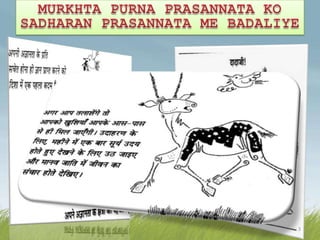 MURKHTA PURNA PRASANNATA KO
SADHARAN PRASANNATA ME BADALIYE
अपनी अज्ञानता के प्रति
सचेत होना ही ज्ञान प्राप्त करने की
दिशा में एक पहला कदम
दादाजी!
अगर आप तलाशेंगे तो
आपको खुशियाँ आपके आस-पास
से ही मिल जाएँगी। उदाहरण के
लिए, महीने में एक बार सूर्य उदय
होते हुए देखने के लिए उठ जाइए
और मानव जाति में जीवन का
संचार होते देखिए।
अपने अज्ञानता के